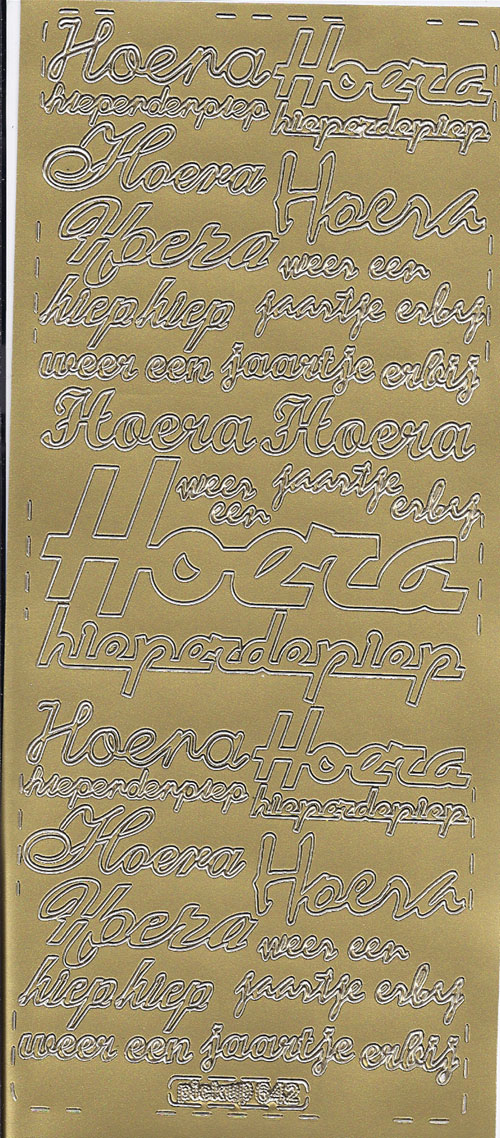 Hoera Hoera
hieperdenpiep hieperdepiep
Hoera Hoera
Hoera weer een
hiep hiep jaartje erbij
weer een jaartje erbij
Hoera Hoera
weer een jaartje erbij
Hoera
hieperdepiep
Hoera Hoera
hieperdenpiep hieperdepiep
Hoera Hoera
Hoera weer een
hiep hiep jaartje erbij
weer een jaartje erbij
pickup 642